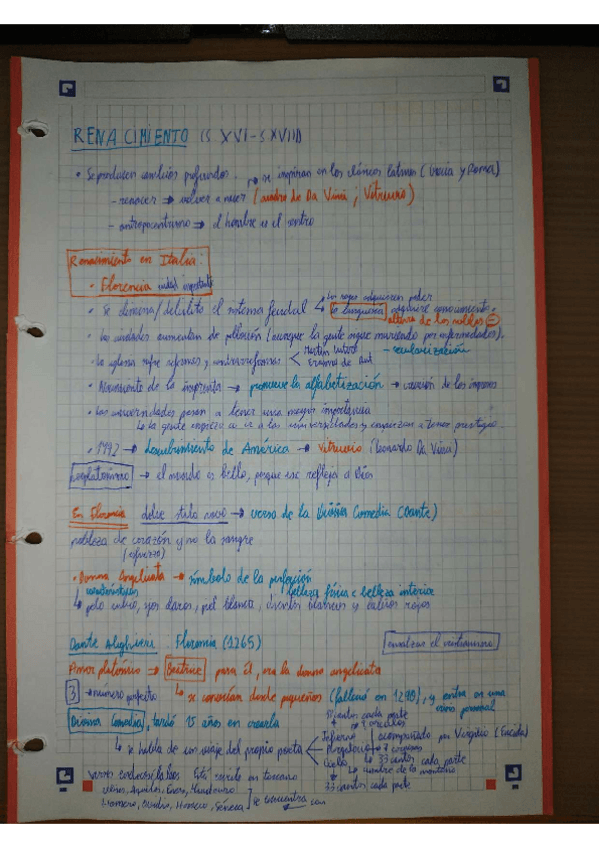 RENACIMIENTO (S XVI-S XVIII)
• Se producen cambios profundos. → se inspiran en los clásicos latinos (Grecia y Roma)
- renacer → volver a nacer (cuadro de Da Vinci; Vitruvio)
- antropocentrismo → el hombre es el centro
Renacimiento en Italia:
• Florencia ciudad importante
los reyes adquieren poder
• Se elimina/debilita el sistema feudal la burguesía adquiere conocimiento
altura de los nobles
• Las ciudades aumentan de población (aunque la gente sigue muriendo por enfermedades).
- secularización
• La iglesia sufre reformas y contrarreformas Martín Lutero
Erasmo de
• Nacimiento de la imprenta → promueve la alfabetización → creación de los
• Las universidades pasan a tener una mayor importancia
la gente empieza a ir a las universidades y comienzan a tener prestigio
• 1492 → descubrimiento de América → Vitruvio (Leonardo Da Vinci)
neoplatonismo → el mundo es bello, porque ese refleja a Dios
En Florencia dolce stilo novo → verso de la Divina Comedia (Dante)
nobleza de corazón y no la sangre
(esfuerzo)
• Donna Angelicata → símbolo de la perfección
características belleza física e belleza interior
pelo rubio, ojos claros, piel blanca, dientes blancos y labios rojos
Dante Alighieri: Florencia (1265)
Amor platónico → Beatrice para él, era la donna angelicata
3 → número perfecto se conocían desde pequeños (falleció en 1290), y entra en una
crisis personal
Divina Comedia, tardó 15 años en crearla
cantos cada parte
se habla de un viaje del propio poeta Infierno acompañado por Virgilio (Eneida)
Purgatorio
Cielo 33 cantos cada parte
la cumbre de la montaña
Está escrito en toscano 33 cantos cada parte
Homero, Ovidio, Homero, Séneca se encuentra con